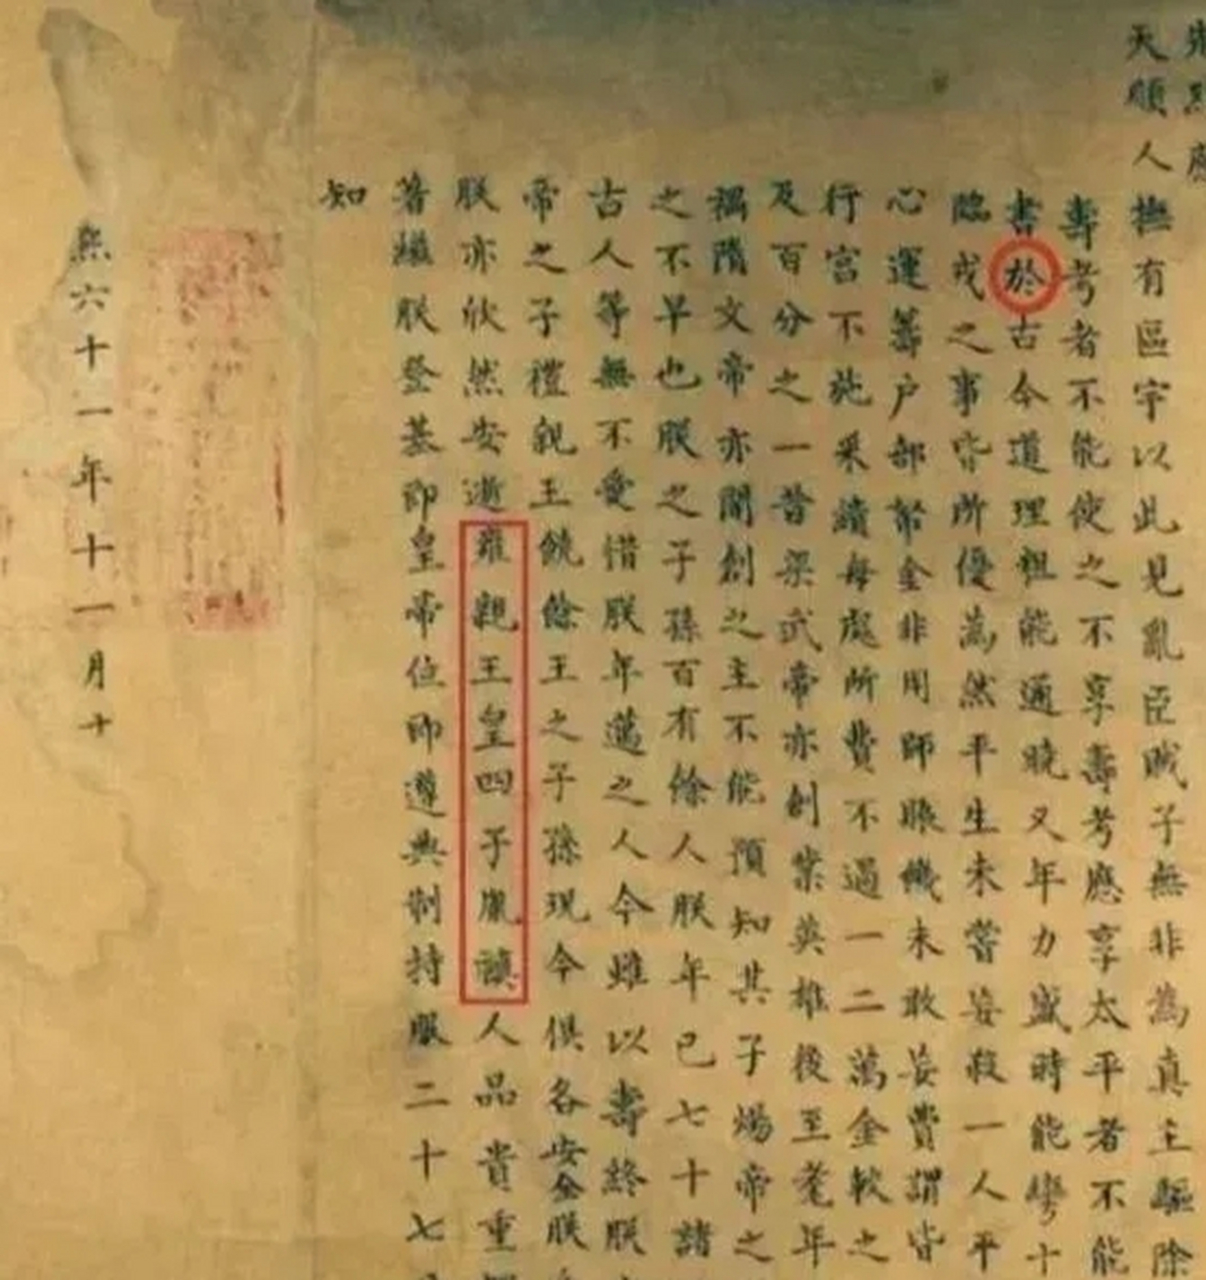 天順人撫有區宇以此見亂臣賊子無非為真主驅除
壽考者不能使之不享壽考應享太平者不能
書於古今道理粗能通曉又年力盛時能彎十
臨戎之事皆所優為然平生未嘗妄殺一人平
心運籌户部帑金非用師賑饑未敢妄費謂皆
行宮不施采繢每處所費不過一二萬金較之
及百分之一昔梁武帝亦創業英雄後至耄年
禍隋文帝亦開創之主不能預知其子煬帝之
之不早也朕之子孫百有餘人朕年已七十諸
古人等無不愛惜朕年邁之人今雖以壽終朕
帝之子禮親王饒餘王之子孫現今俱各安全朕
朕亦欣然安逝雍親王皇四子胤禛人品貴重
著繼朕登基即皇帝位即遵典制持服二十七
知
熙六十一年十一月十